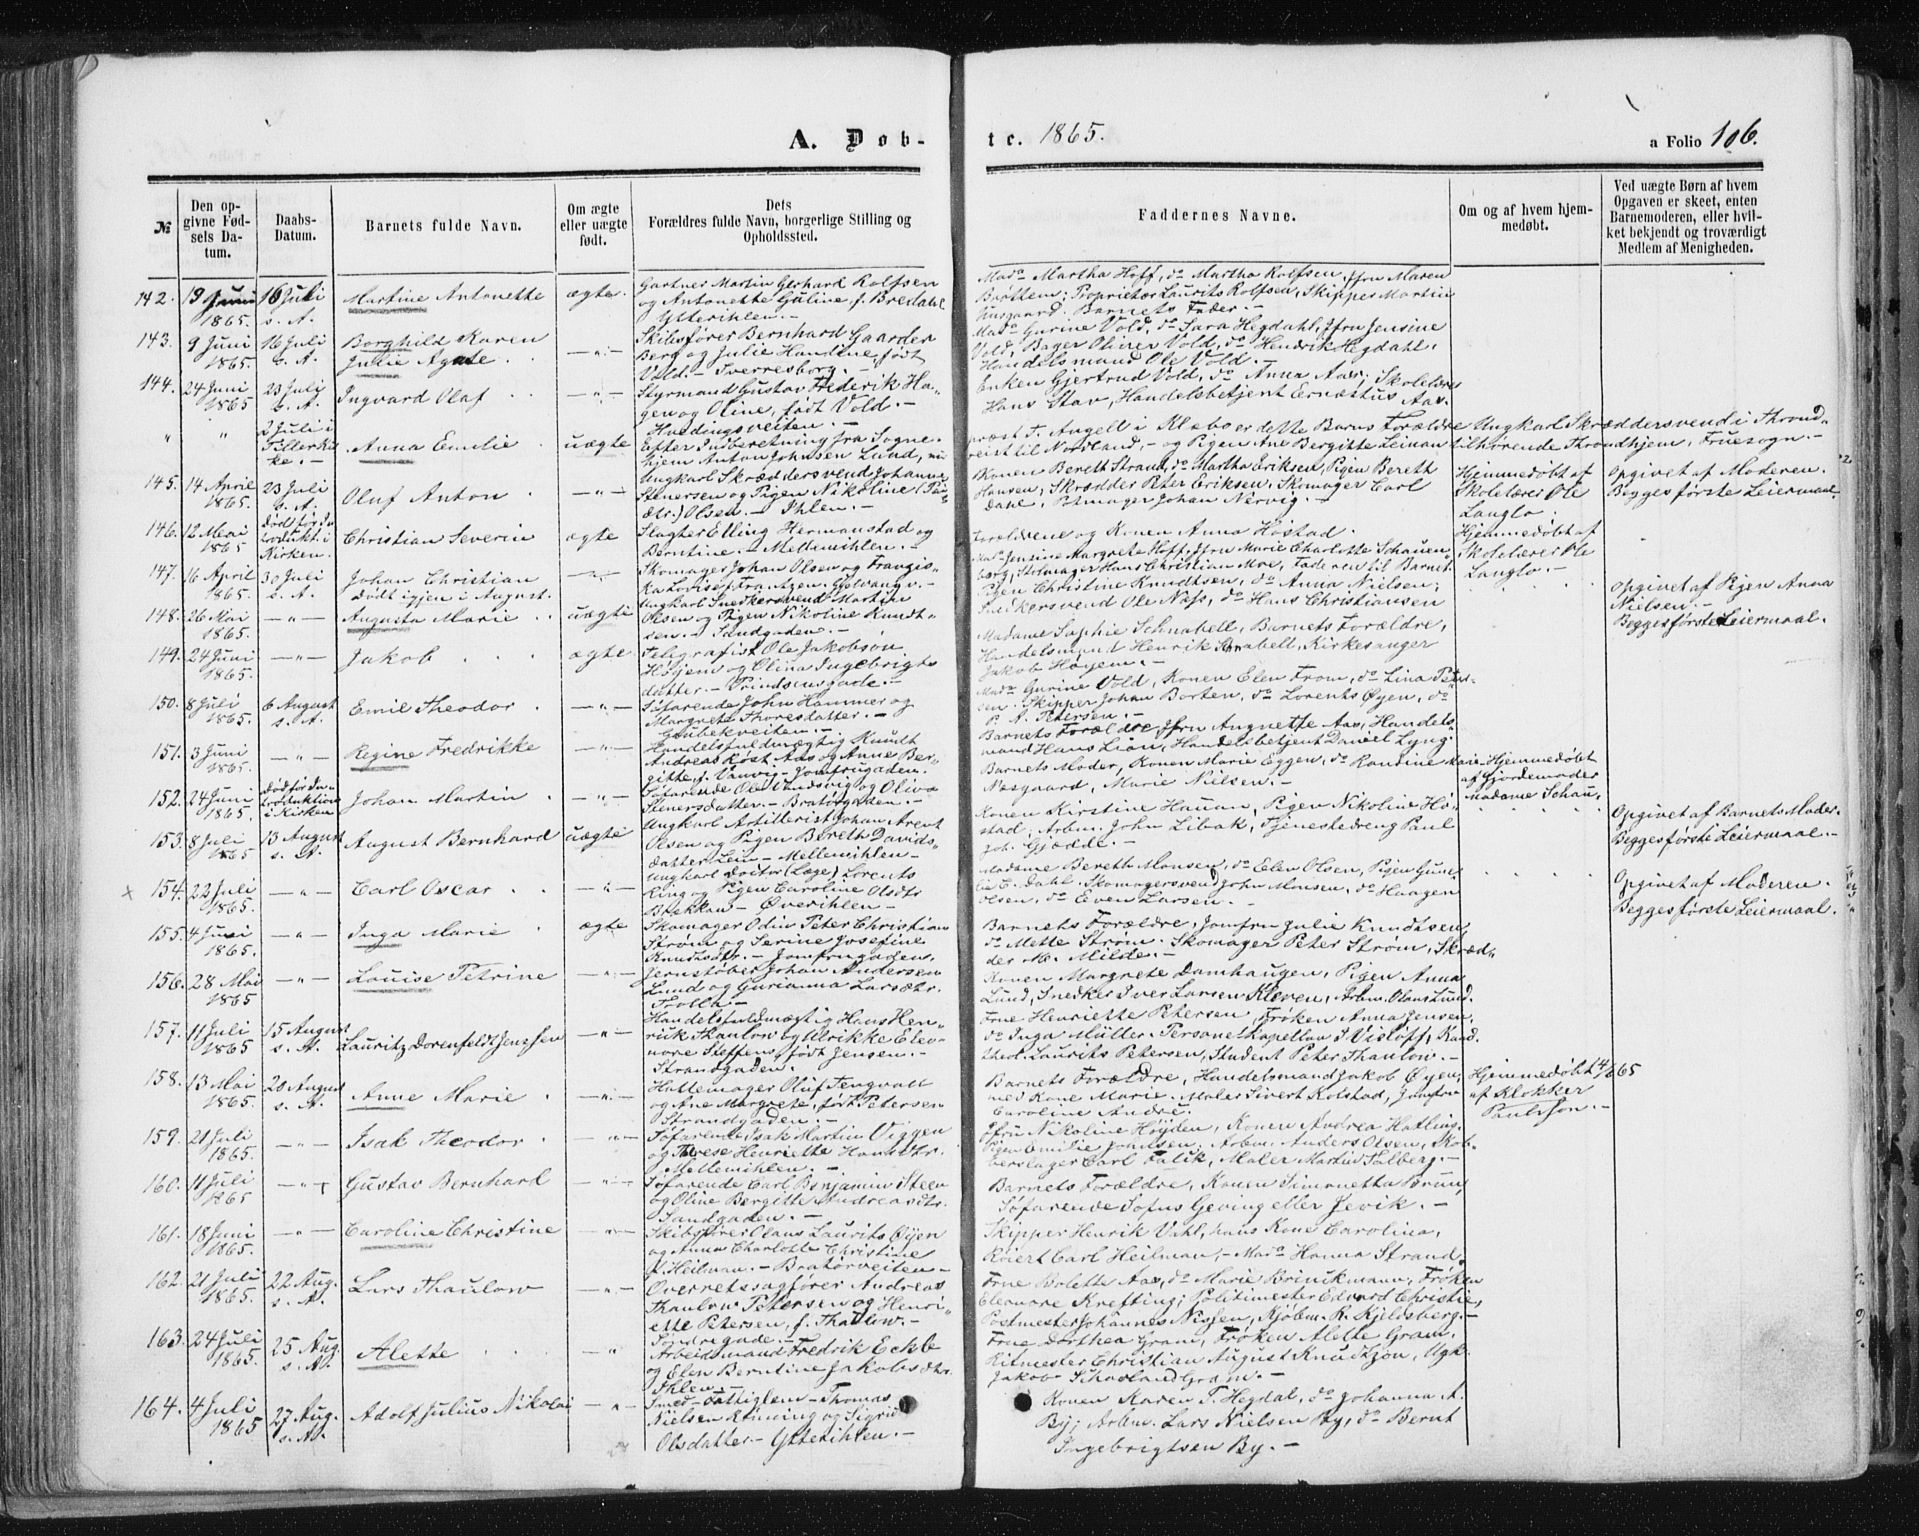 A. Døb-
te. 1865.
a Folio 106.
№
Den op-
givne Fød-
sels Da-
tum.
Daabs-
Datum.
Barnets fulde Navn.
Om ægte
eller uægte
født.
Dets
Forældres fulde Navn, borgerlige Stilling og
Opholdssted.
Faddernes Navne.
Om og af hvem hjem-
medøbt.
Ved uægte Børn af hvem
Opgaven er skeet, enten
Barnemoderen, eller hvil-
ket bekjendt og troværdigt
Medlem af Menigheden.
142. 19 Juni 1865. 16 Juli s. A. Martine Antonette ægte.
Gartner Martin Gerhard Rolfsen
og Antonette Guline f. Bredahl
Ytterihlen.-
Mad. Martha Hoff, do Martha Rolfsen, Jfru Maren
Brøttem; Proprietær Laurits Rolfsen, Skipper Martin
Barnets Fader.-
143. 9 Juni 1865. 16 Juli s. A. Borghild Karen
Julie Agate -"-
Skibsfører Bernhard Gaarder
Berg og Julie Handine født
Vold.- Sverresborg.-
Mad. Gurine Vold, do Sara Hegdahl, Jfru Jensine
Vold, Bager Oliver Vold, do Hendrik Hegdahl,
Handelsmand Ole Vold.-
144. 24 Juni 1865 23 Juli s. A. Ingvard Olaf -"-
Styrmand Gustav Frederik Ha-
gen og Oline, født Vold.-
Enken Gjertrud Vold, do Anna Aas; Skolelærer
Hans Stav, Handelsbetjent Ernæstus Aas.
" " 2 Juli i
Tillerkir
ke.- Anna Emilie uægte
Efter Indberetning fra Sogne-
præst T. Angell i Klæbo er dette Barns Forældre Ungkarl Skræddersvend i Thrond-
hjem Anton Johnsen Lund, nu
reist til Nordland,- og Pigen Ane Bergitte Leinan tilhørende Throndhjem, Fruesogn.-
145. 14 April 1865. 23 Juli s. A. Oluf Anton -"-
Ungkarl Skræddersvend Johannes
Stenersen og Pigen Nikoline
Olsen.- Ihlen.-
Konen Bereth Strand, do Martha Eriksen, Pigen Bereth
Hansen, Skrædder Peter Eriksen, Skomager Carl
Dahl, Johan Nervig.-
Hjemmedøbt af
Skolelærer Ole
Langlo.-
Opgivet af Moderen.
Begges første Leiermaal.
146. 12 Mai 1865 Død før In
troduk. i
Kirken. Christian Severin ægte
Slagter Elling Hermanstad og
Berntine.- Mellemihlen.-
Forældrene og Konen Anna Høstad.
Hjemmedøbt af
Skolelærer Ole
Langlo.-
147. 16 April 1865. 30 Juli s. A. Johan Christian
Døbt igjen i August.
Skomager Johan Olsen og Frangis-
ka Lovise
Mad. Jensine Margrete Hoff, Jfru Marie Charlotte Schauen
borg, Hans Christian Moe, Faderen til Barnet.
148. 26 Mai 1865. -"- Augusta Marie uægte
Ungkarl Snedkersvend Martin
Olsen og Pigen Nikoline Knudt-
sen.- Sandgaden.-
Pigen Christine Knudtsen, do Anna Nielsen;
Snedkersvend Ole Næss, do Hans Christiansen
Opgivet af Pigen Anna
Nielsen.-
Begges første Leiermaal.
149. 24 Juni 1865. -"- Jakob ægte
Telegrafist Ole Jakobson
Høyem og Olina Ingebrigts
datter.- Prindsensgade.-
Madame Sophie Schnabell, Barnets Forældre,
Handelsmand Henrik Schnabell, Kirkesanger
Jakob Høyem.-
150. 8 Juli 1865. 6 August s. A. Emil Theodor -"-
Søfarende John Hammer og
Margrete Thoresdatter.-
Grubekveiten.-
Mad. Gurine Vold, Konen Elen From, do Lina Peter-
sen. Skipper Johan Borten, do Lorents Øyen, do
P. A. Petersen.-
151. 3 Juni 1865. -"- Regine Fredrikke -"-
Handelsfuldmægtig Knudt
Andreas Røst Aas og Anne Ber-
gitte f. Vanvig.- Jomfrugaden.
Barnets Forældre, Jfru Angnette Aas, Handels-
mand Hans Lian, Handelsbetjent Daniel Lyng.
152. 24 Juni 1865. Død før In
troduktion
i Kirken Johan Martin -"-
Søfarende Ole Vandsvig og Oliva
Stenersdatter.- Bratørgaden.-
Barnets Moder, Konen Marie Eggen, do Randine Marie
Næsgaard, Marie Nielsen.-
Hjemmedøbt
af Gjordemoder
Madame Schau,
153. 8 Juli 1865 13 August s. A. August Bernhard uægte
Ungkarl Artillerist Johan Arent
Olsen og Pigen Bereth Davids-
datter Lein.- Mellemihlen.-
Konen Kirstine Hauan, Pigen Nikoline Hø-
stad, Arbm. John Libak, Tjenestedreng Paul
Joh. Gjædde.-
Opgivet af Barnets Moder.
Begges første Leiermaal.-
× 154. 22 Juli 1865. -"- Carl Oscar -"
Ungkarl Doktor (Læge) Lorents
Ring og Pigen Caroline Olsdtr
Bækkan.- Øverihlen.-
Madame Bereth Monsen, do Elen Olsen, Pigen Gune-
lie E. Dahl, Skomagersvend John Monsen, do Haagen
Olsen, do Even Larsen.-
Opgivet af Moderen.
Begges første Leiermaal.
155. 4 Juni 1865. -"- Inga Marie ægte
Skomager Odin Peter Christian
Strøm og Serine Josefine
Knudtsdtr.- Jomfrugaden.
Barnets Forældre, Jomfru Julie Knudtsen,
do Mette Strøm. Skomager Peter Strøm, Skræd-
der M. Milde.-
156. 28 Mai 1865 -"- Louise Petrine -"-
Jernstøber Johan Andersen
Lund og Gurianna Larsdtr.
Konen Margrete Damhaugen, Pigen Anna
Lund, Snedker Iver Larsen Kleven, Arbm. Olaus Lund.
157. 11 Juli 1865 15 August s. A. Lauritz Dorenfeldt Jenssen -"-
Handelsfuldmægtig Hans Hen-
rik Thaulow og Ulrikke Eleo-
nore Steffens, født Jensen.-
Strandgaden.
Frue Henriette Petersen, Frøken Anna Jensen,
do Inga Müller. Personelkapellan J. Visløff, Kand.
theol. Laurits Petersen, Student Peter Thaulow.-
158. 13 Mai 1865. 20 August s. A. Anne Marie -"-
Hattemager Oluf Tengvall
og Ane Margrete, født Petersen
Strandgaden.-
Barnets Forældre, Handelsmand Jakob Øyen,
med Kone Marie. Maler Sivert Kolstad, Jomfru
Caroline André.
Hjemmedøbt
af Klokker
Paulsson.-
159. 21 Juli 1865. -"- Isak Theodor -"-
Søfarende Isak Martin Viggen
og Therese Henriette Hansdtr.
Mellemihlen.-
Jfru Nikoline Høyden, Konen Andrea Hatling.
Pigen Emilie Johnsen. Arbm. Anders Olsen, Kob-
berslager Carl Falik, Maler Martin Solberg.-
160. 11 Juli 1865 -"- Gustav Bernhard -"-
Søfarende Carl Benjamin Steen
og Oline Bergitte Andreasdtr.
Sandgaden.-
Barnets Forældre, Konen Simonetta Bruun,
Søfarende Sofus Geving eller Jevik.-
161. 18 Juni 1865. -"- Caroline Christine -"-
Skibsfører Olaus Laurits Øyen
og Anna Charlotte Christine
f. Heilman.- Bratørveiten.-
Skipper Henrik Vahl, hans Kone Carolina,
Røiert Carl Heilman,- Mad. Hanna Strand.
162. 21 Juli 1865. 22 Aug. s. A. Lars Thaulow -"-
Overretssagfører Andreas
Thaulow Petersen og Henri-
ette Petersen, f. Thaulow.-
Søndregade.-
Frue Bolette Aas, do Marie Brinikmann, Frøken
Eleonore Krefting; Politimester Edvard Christie,
Postmester Johannes Nissen, Kjøbm. R. Kjeldsberg.-
163. 24 Juli 1865. 25 Aug. s. A. Alette -"
Arbeidsmand Fredrik Eckle
og Elen Berntine Jakobsdtr.
Ihlen.-
Frue Dorthea Gram, Frøken Alette Gram,
Ritmester Christian August Knudtzon, Ugk.
Jakob Schavland Gram.-
164. 4 Juli 1865 27 Aug. s. A. Adolf Julius Nikolai -"-
Smed- Fattiglem- Thomas
Nielsen Rønning og Sigrid
Olsdatter.- Ytterihlen.-
Konen Karen T. Hegdal, do Johanna A.
By; Arbm. Lars Nielsen By, do Bernt
Ingebrigtsen By.-